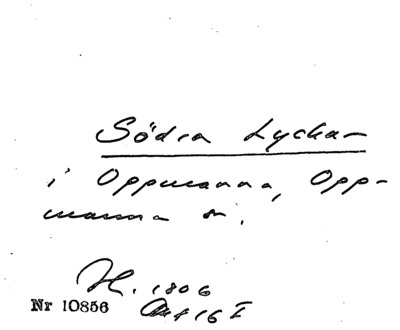 Södra Lyckan
i Oppmanna, Opp-
manna sn.
H. 1806
Nr 10856 Akt 16 I